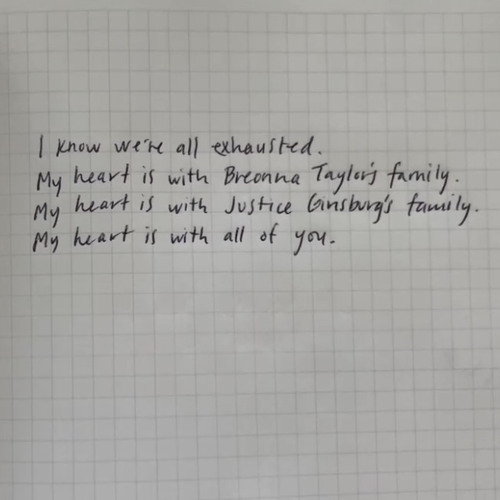 I know we're all exhausted.
My heart is with Breonna Taylor's family.
My heart is with Justice Ginsburg's family.
My heart is with all of you.